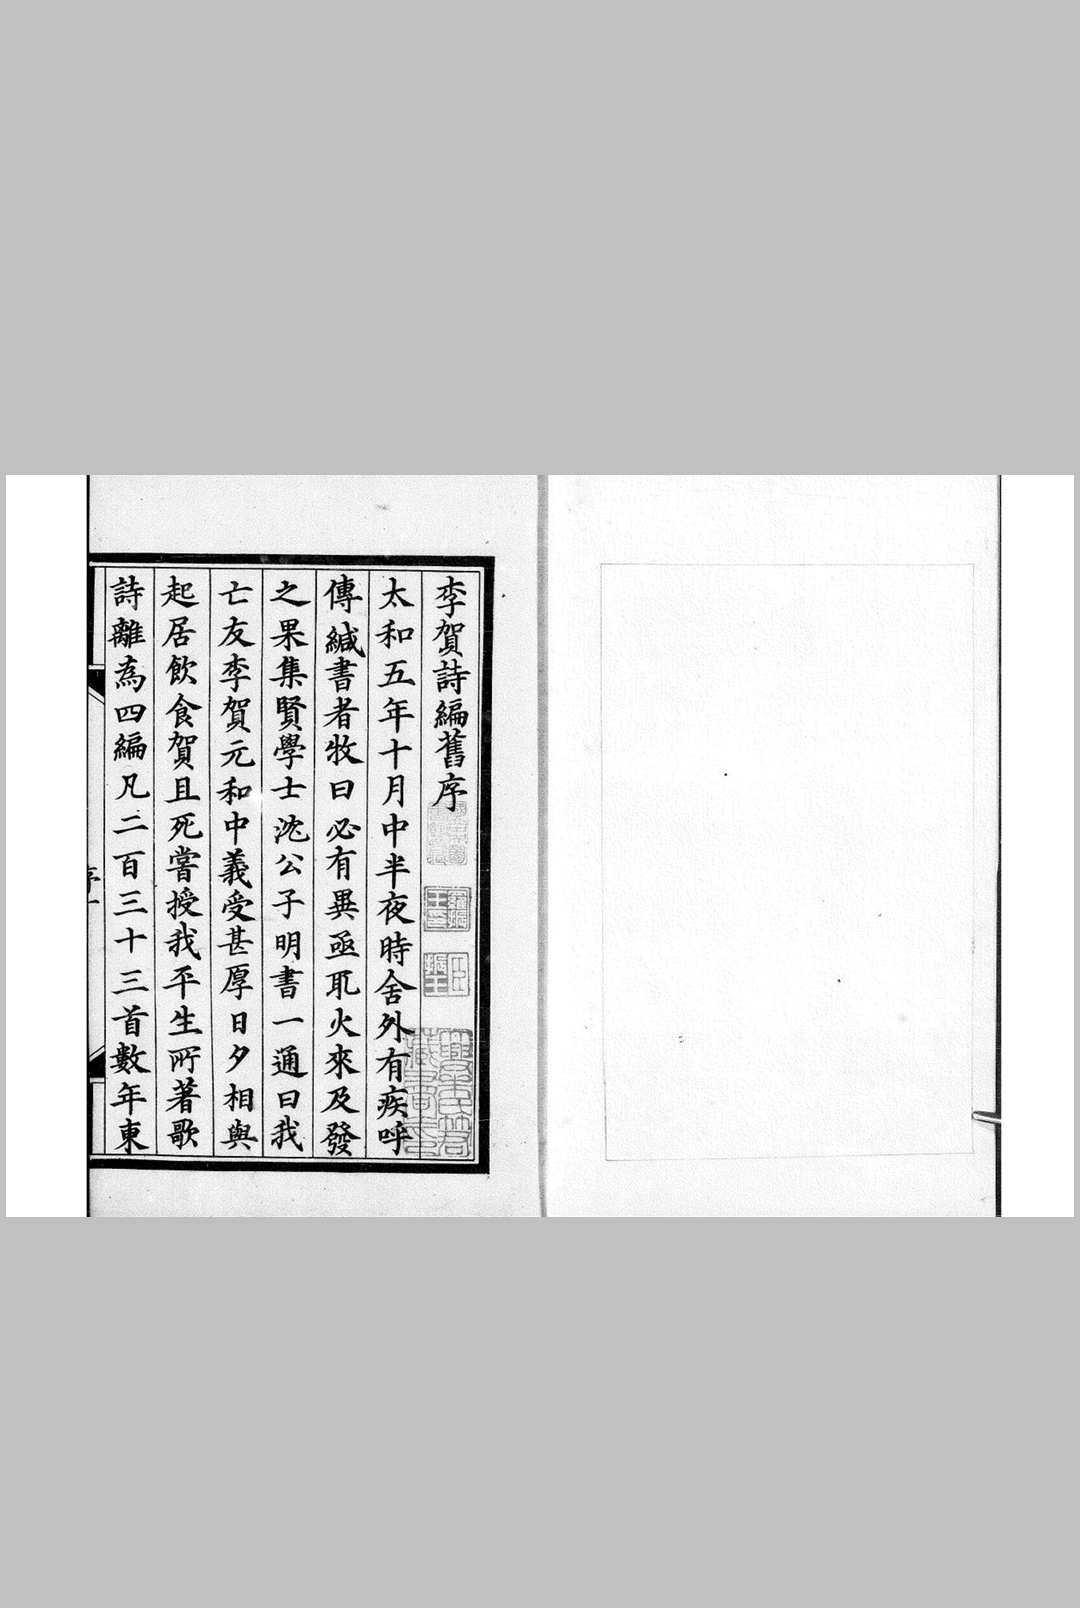 李賀詩編舊序
太和五年十月中半夜時舍外有疾呼
傳緘書者牧曰必有異亟取火來及發
之果集賢學士沈公子明書一通曰我
亡友李賀元和中義愛甚厚日夕相與
起居飲食賀且死嘗授我平生所著歌
詩離為四編凡二百三十三首數年東
序一